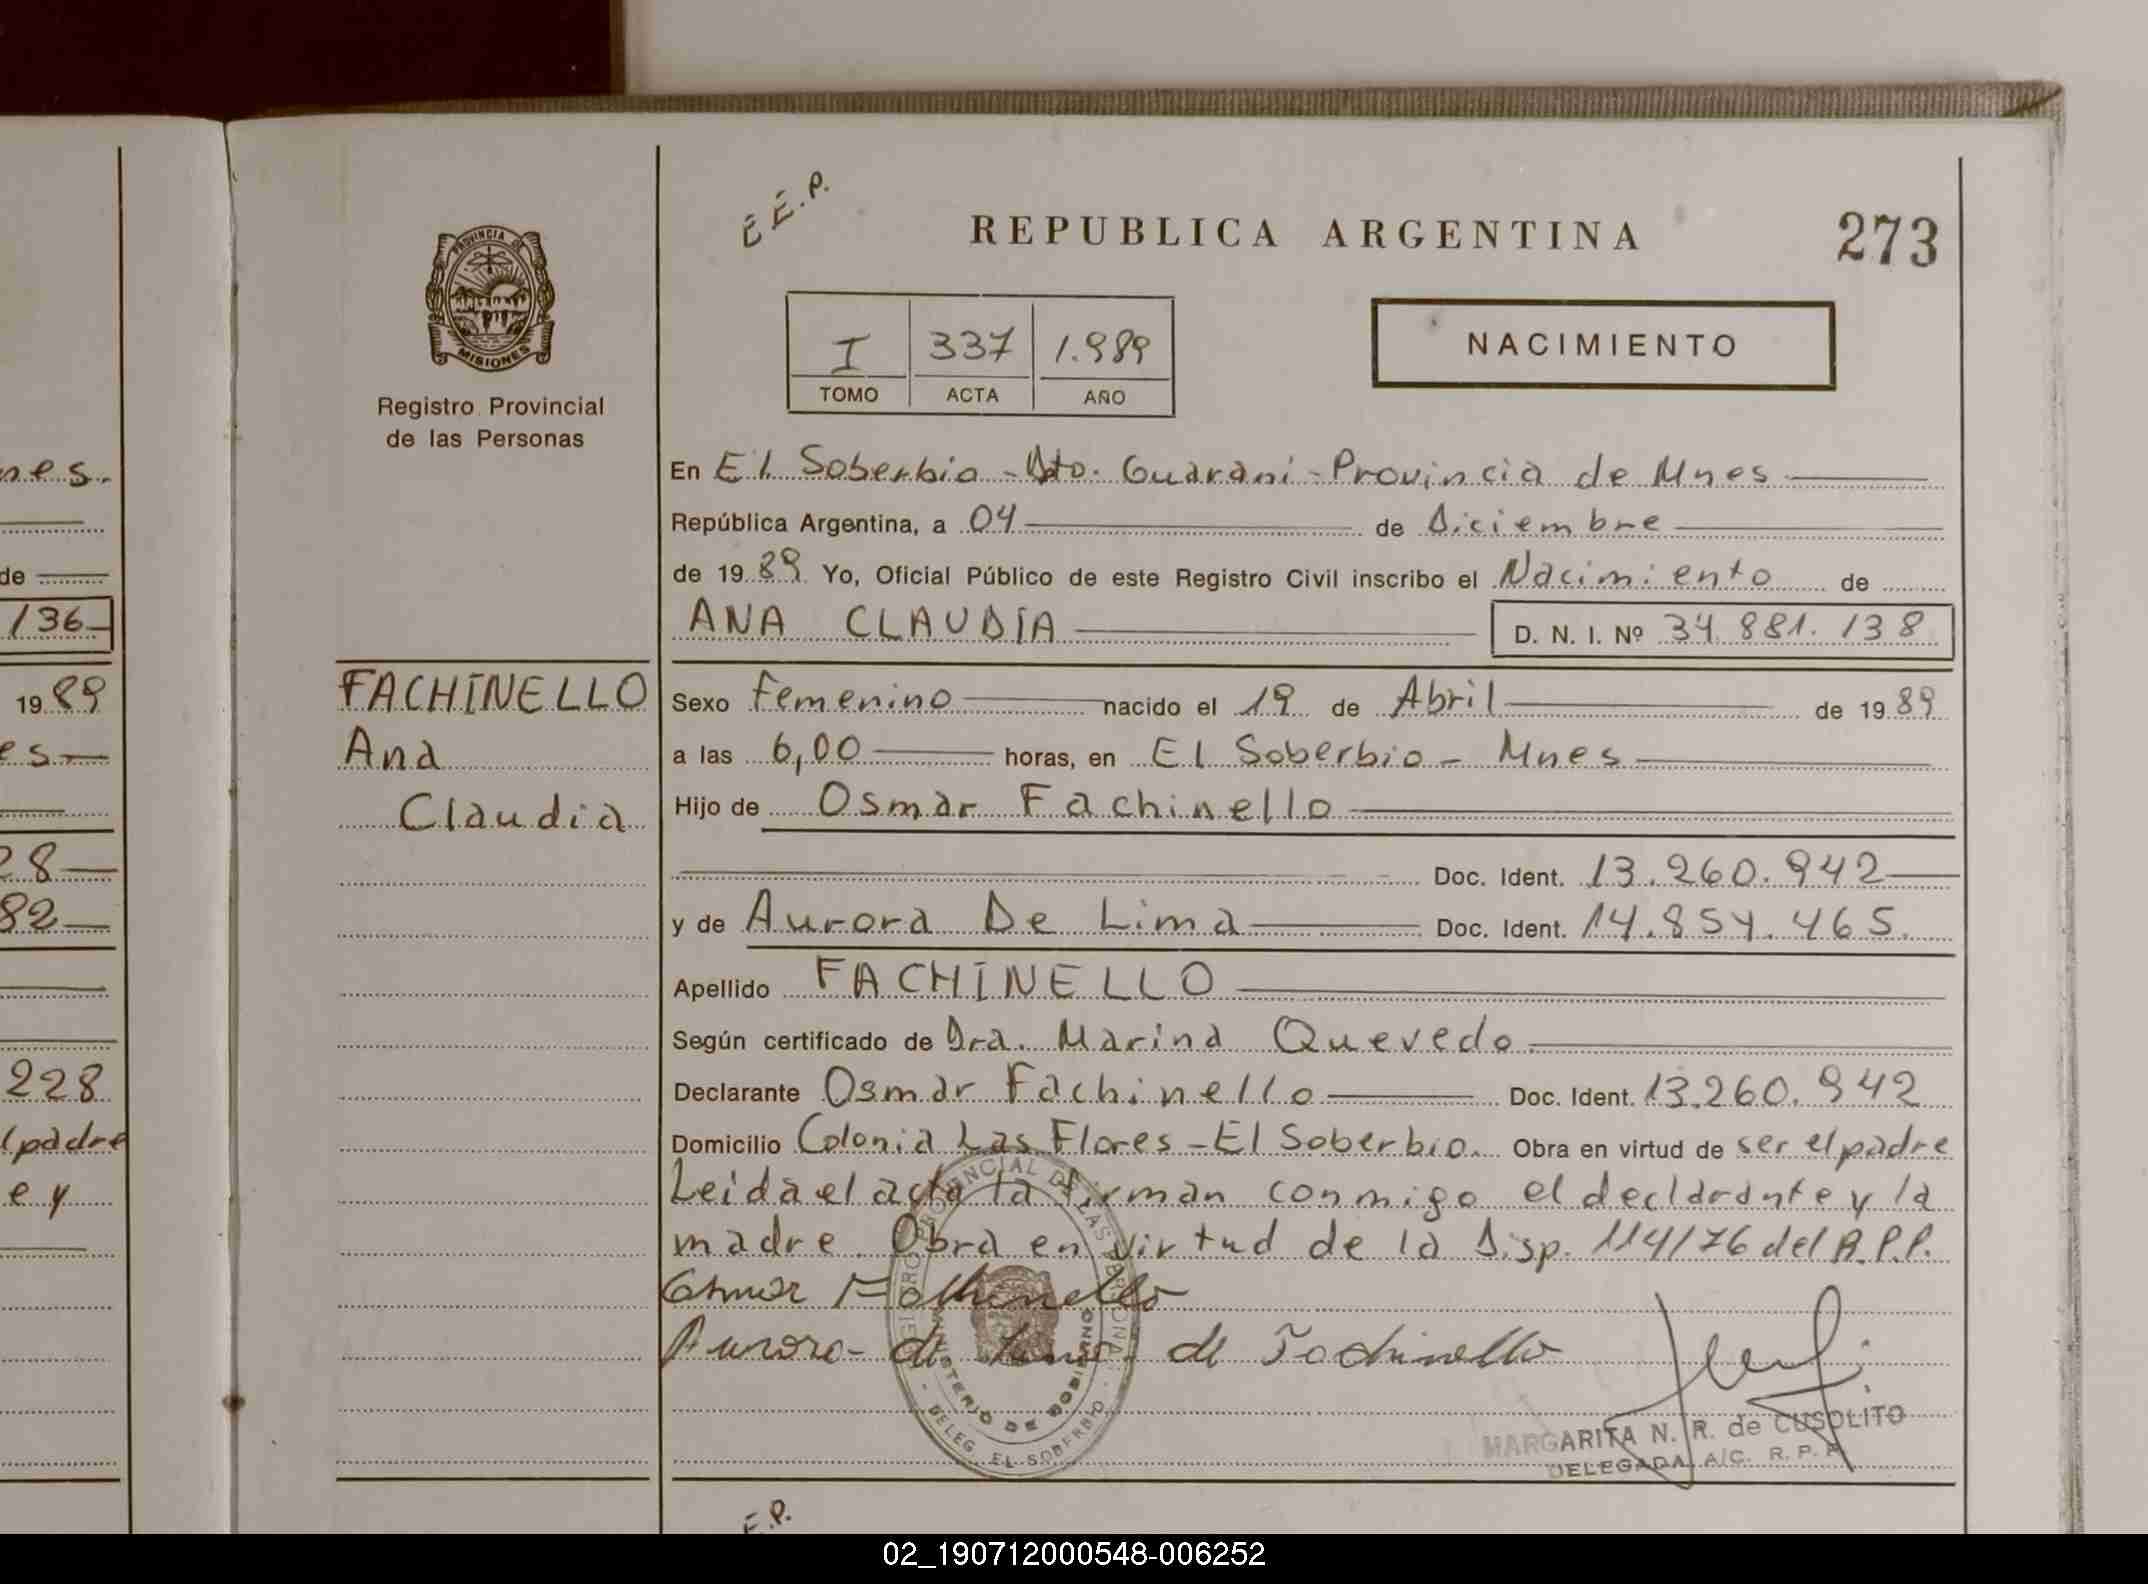 E E.P.
REPUBLICA ARGENTINA
273
PROVINCIA DE
MISIONES
Registro Provincial
de las Personas
I 337 1.989
TOMO ACTA AÑO
NACIMIENTO
En El Soberbio - Dto. Guaraní - Provincia de Mnes
República Argentina, a 04 de Diciembre
de 19 89 Yo, Oficial Público de este Registro Civil inscribo el Nacimiento de
ANA CLAUDIA D. N. I. Nº 34.881.138
FACHINELLO
Ana
Claudia
Sexo Femenino nacido el 19 de Abril de 19 89
a las 6,00 horas, en El Soberbio - Mnes
Hijo de Osmar Fachinello
Doc. Ident. 13.260.942
y de Aurora De Lima Doc. Ident. 14.854.465.
Apellido FACHINELLO
Según certificado de Dra. Marina Quevedo
Declarante Osmar Fachinello Doc. Ident. 13.260.942
Domicilio Colonia Las Flores - El Soberbio. Obra en virtud de ser el padre
Leida el acta la firman conmigo el declarante y la
madre. Obra en virtud de la Disp. 114/76 del R.P.P.
Osmar Fachinello
Aurora de Lima de Fachinello
REGISTRO PROVINCIAL DE LAS PERSONAS
MINISTERIO DE GOBIERNO
DELEG. EL SOBERBIO
MARGARITA N. R. de CUSOLITO
DELEGADA A/C. R. P. P.
E.P.
nes.
de
136
19 89
es
28
82
228
l padre
e y
02_190712000548-006252